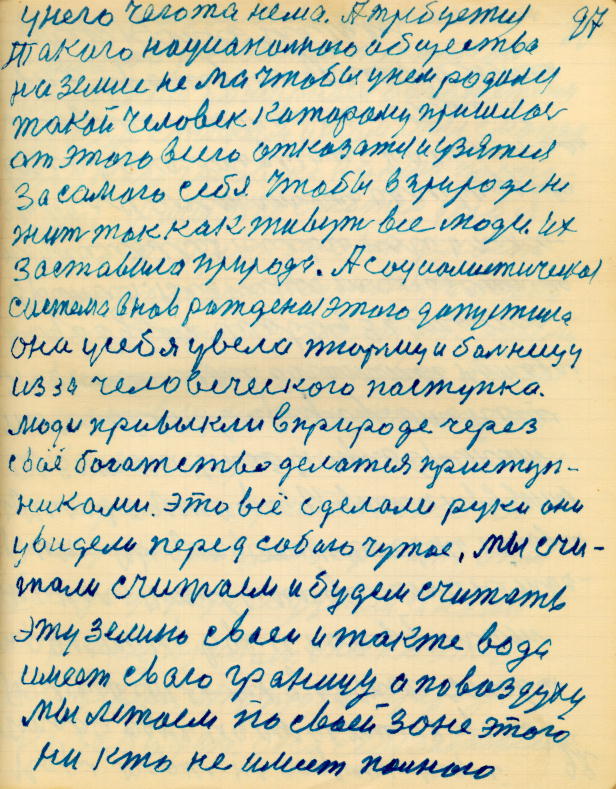 у него чегота нема. А требуется 97
такого национолного общества
на земле не ма чтобы у нем родился
такой человек каторому пришлос
от этого всего отказатся и узятся
за самого себя чтобы в природе не
жит так как живут все люди. их
заставила природа. А социалистическоя
система внов рожденая этого допустила
она у себя увела тюрму и болницу
из за человеческого паступка.
люди привыкли в природе через
своё богатство делатся приступ-
никами. это всё сделали руки они
увидели перед собою чужое, мы счи-
тали считаем и будем считать
эту землю своей и также вода
имеет своюо границу а по воздуху
мы летаем по своей зоне этого
ни кто не имеет полного